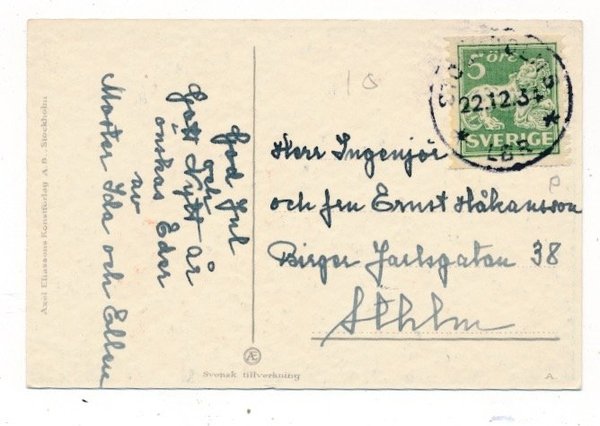 God Jul
och
Gott Nytt år
önskas Eder
av
Moster Ida och Ellen
Herr Ingenjör
och fru Ernst Håkansson
Birger Jarlsgatan 38
Sthlm
5 öre
SVERIGE
22.12.34
LBR
Axel Eliassons Konstförlag A.B. Stockholm
Æ
Svensk tillverkning
A.